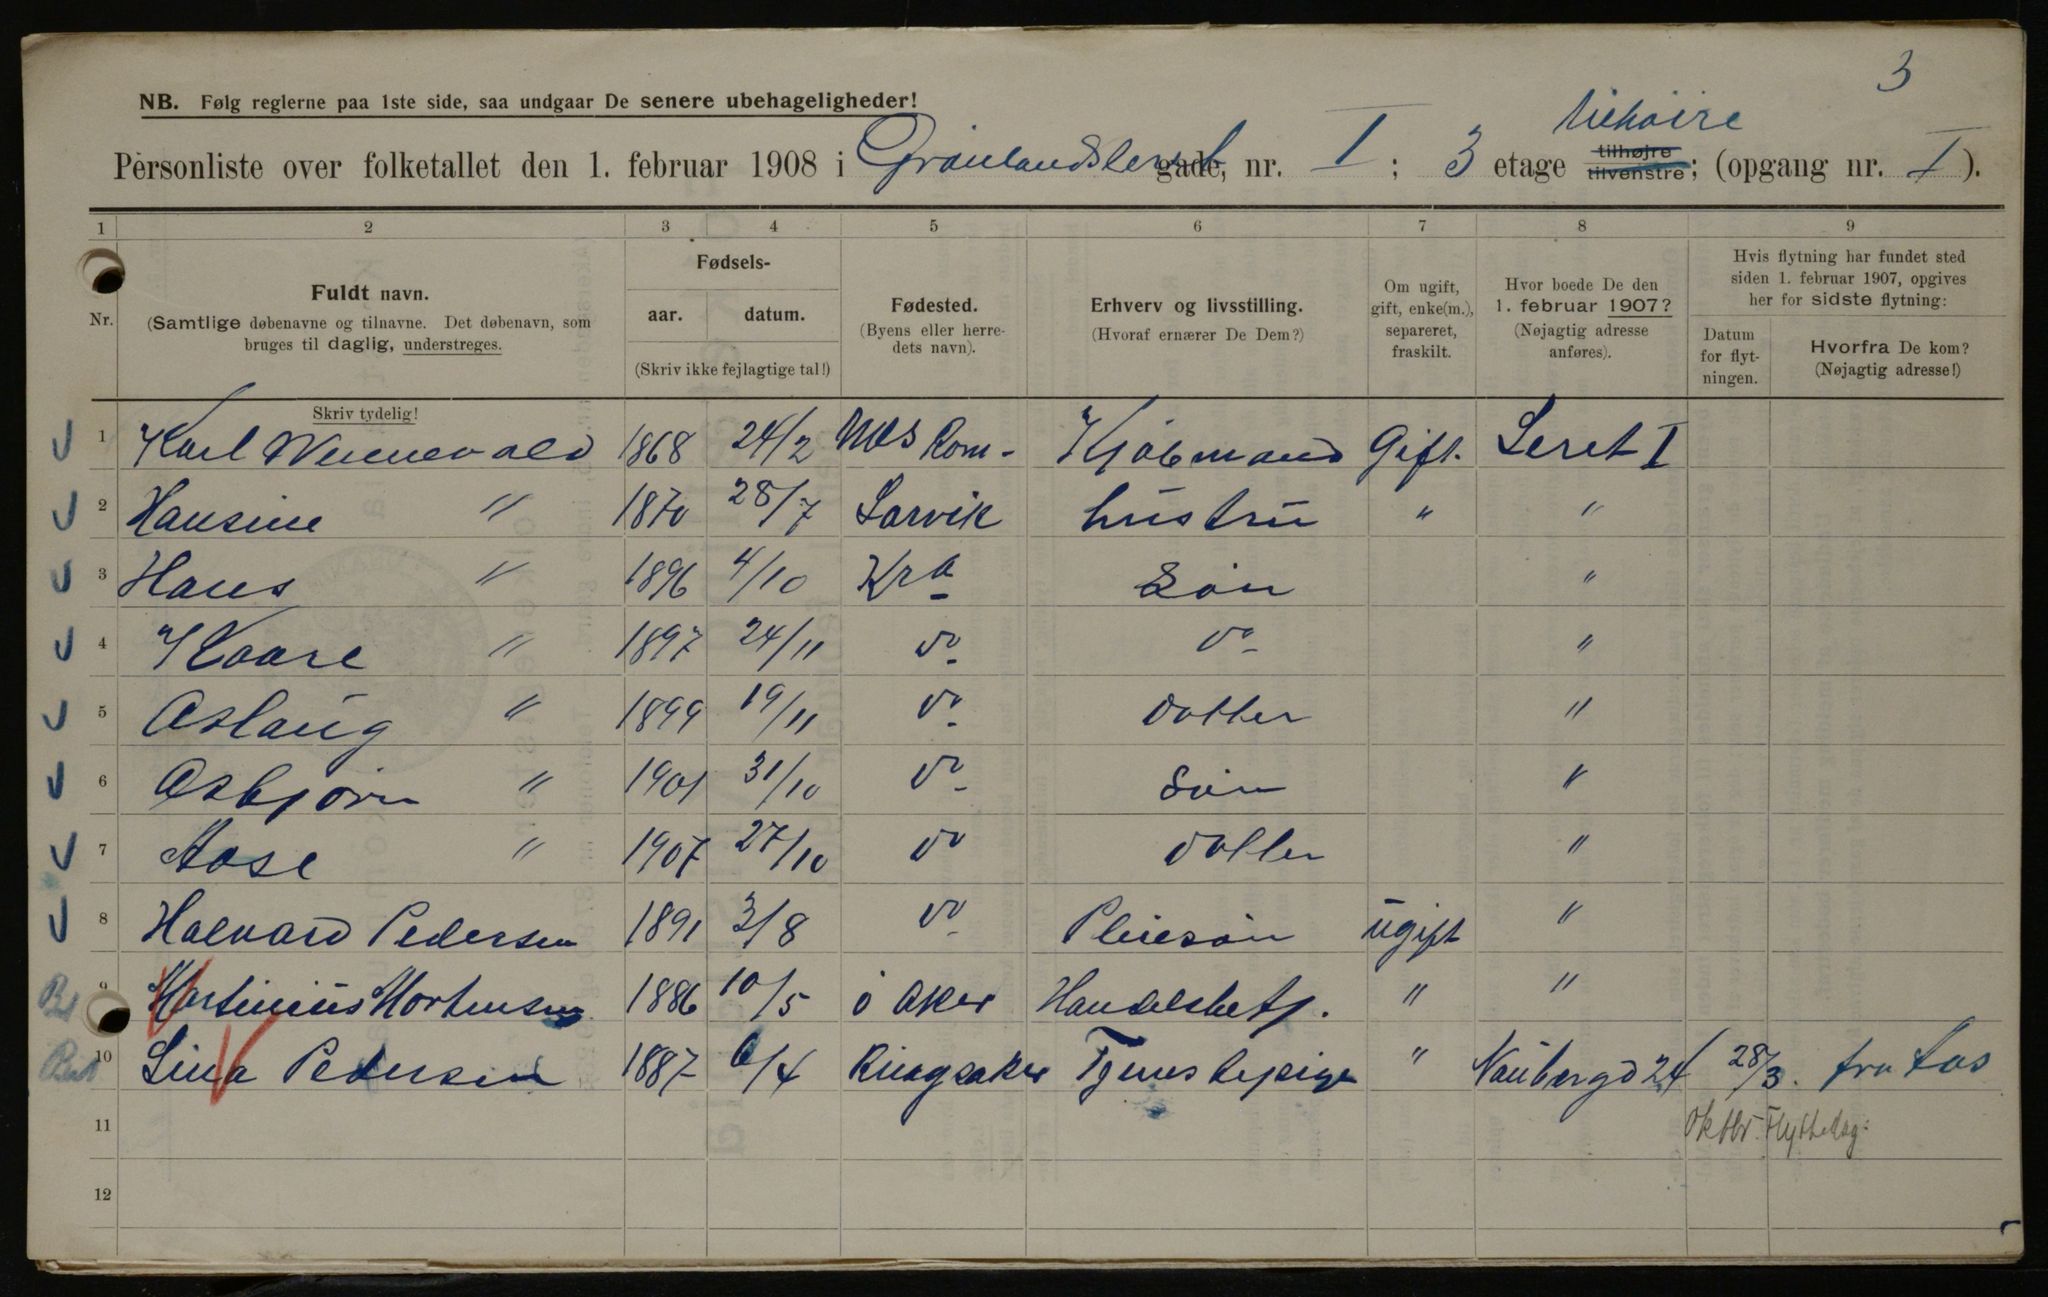 3
NB. Følg reglerne paa 1ste side, saa undgaar De senere ubehageligheder!
tilhøire
Personliste over folketallet den 1. februar 1908 i Grønlandsleret gade, nr. I ; 3 etage tilhøjre tilvenstre; (opgang nr. I ).
1 2 3 4 5 6 7 8 9
Nr.
Fuldt navn.
(Samtlige døbenavne og tilnavne. Det døbenavn, som
bruges til daglig, understreges.
Skriv tydelig!
Fødsels-
aar. datum.
(Skriv ikke fejlagtige tal!)
Fødested.
(Byens eller herre-
dets navn).
Erhverv og livsstilling.
(Hvoraf ernærer De Dem?)
Om ugift,
gift, enke(m.),
separeret,
fraskilt.
Hvor boede De den
1. februar 1907?
(Nøjagtig adresse
anføres).
Hvis flytning har fundet sted
siden 1. februar 1907, opgives
her for sidste flytning:
Datum
for flyt-
ningen.
Hvorfra De kom?
(Nøjagtig adresse!)
1 Karl Wennevald 1868 24/2 Nes Rom- Kjøbmand Gift. Leret I
2 Hansine " 1870 28/7 Larvik hustru " "
3 Hans " 1896 4/10 Kra Søn "
4 Kaare " 1897 24/11 do do "
5 Aslaug " 1899 19/11 do datter "
6 Asbjørn " 1901 31/10 do Søn "
7 Aase " 1907 27/10 do datter "
8 Halvard Pedersen 1891 3/8 do Pleiesøn ugift "
9 Martinius Mortensen 1886 10/5 ø Aker Handelsbetj. " "
10 Lina Pedersen 1887 6/4 Ringsaker Tjenestepige " 24 28/3. fra
11 Oktbr. Flyttedag:
12